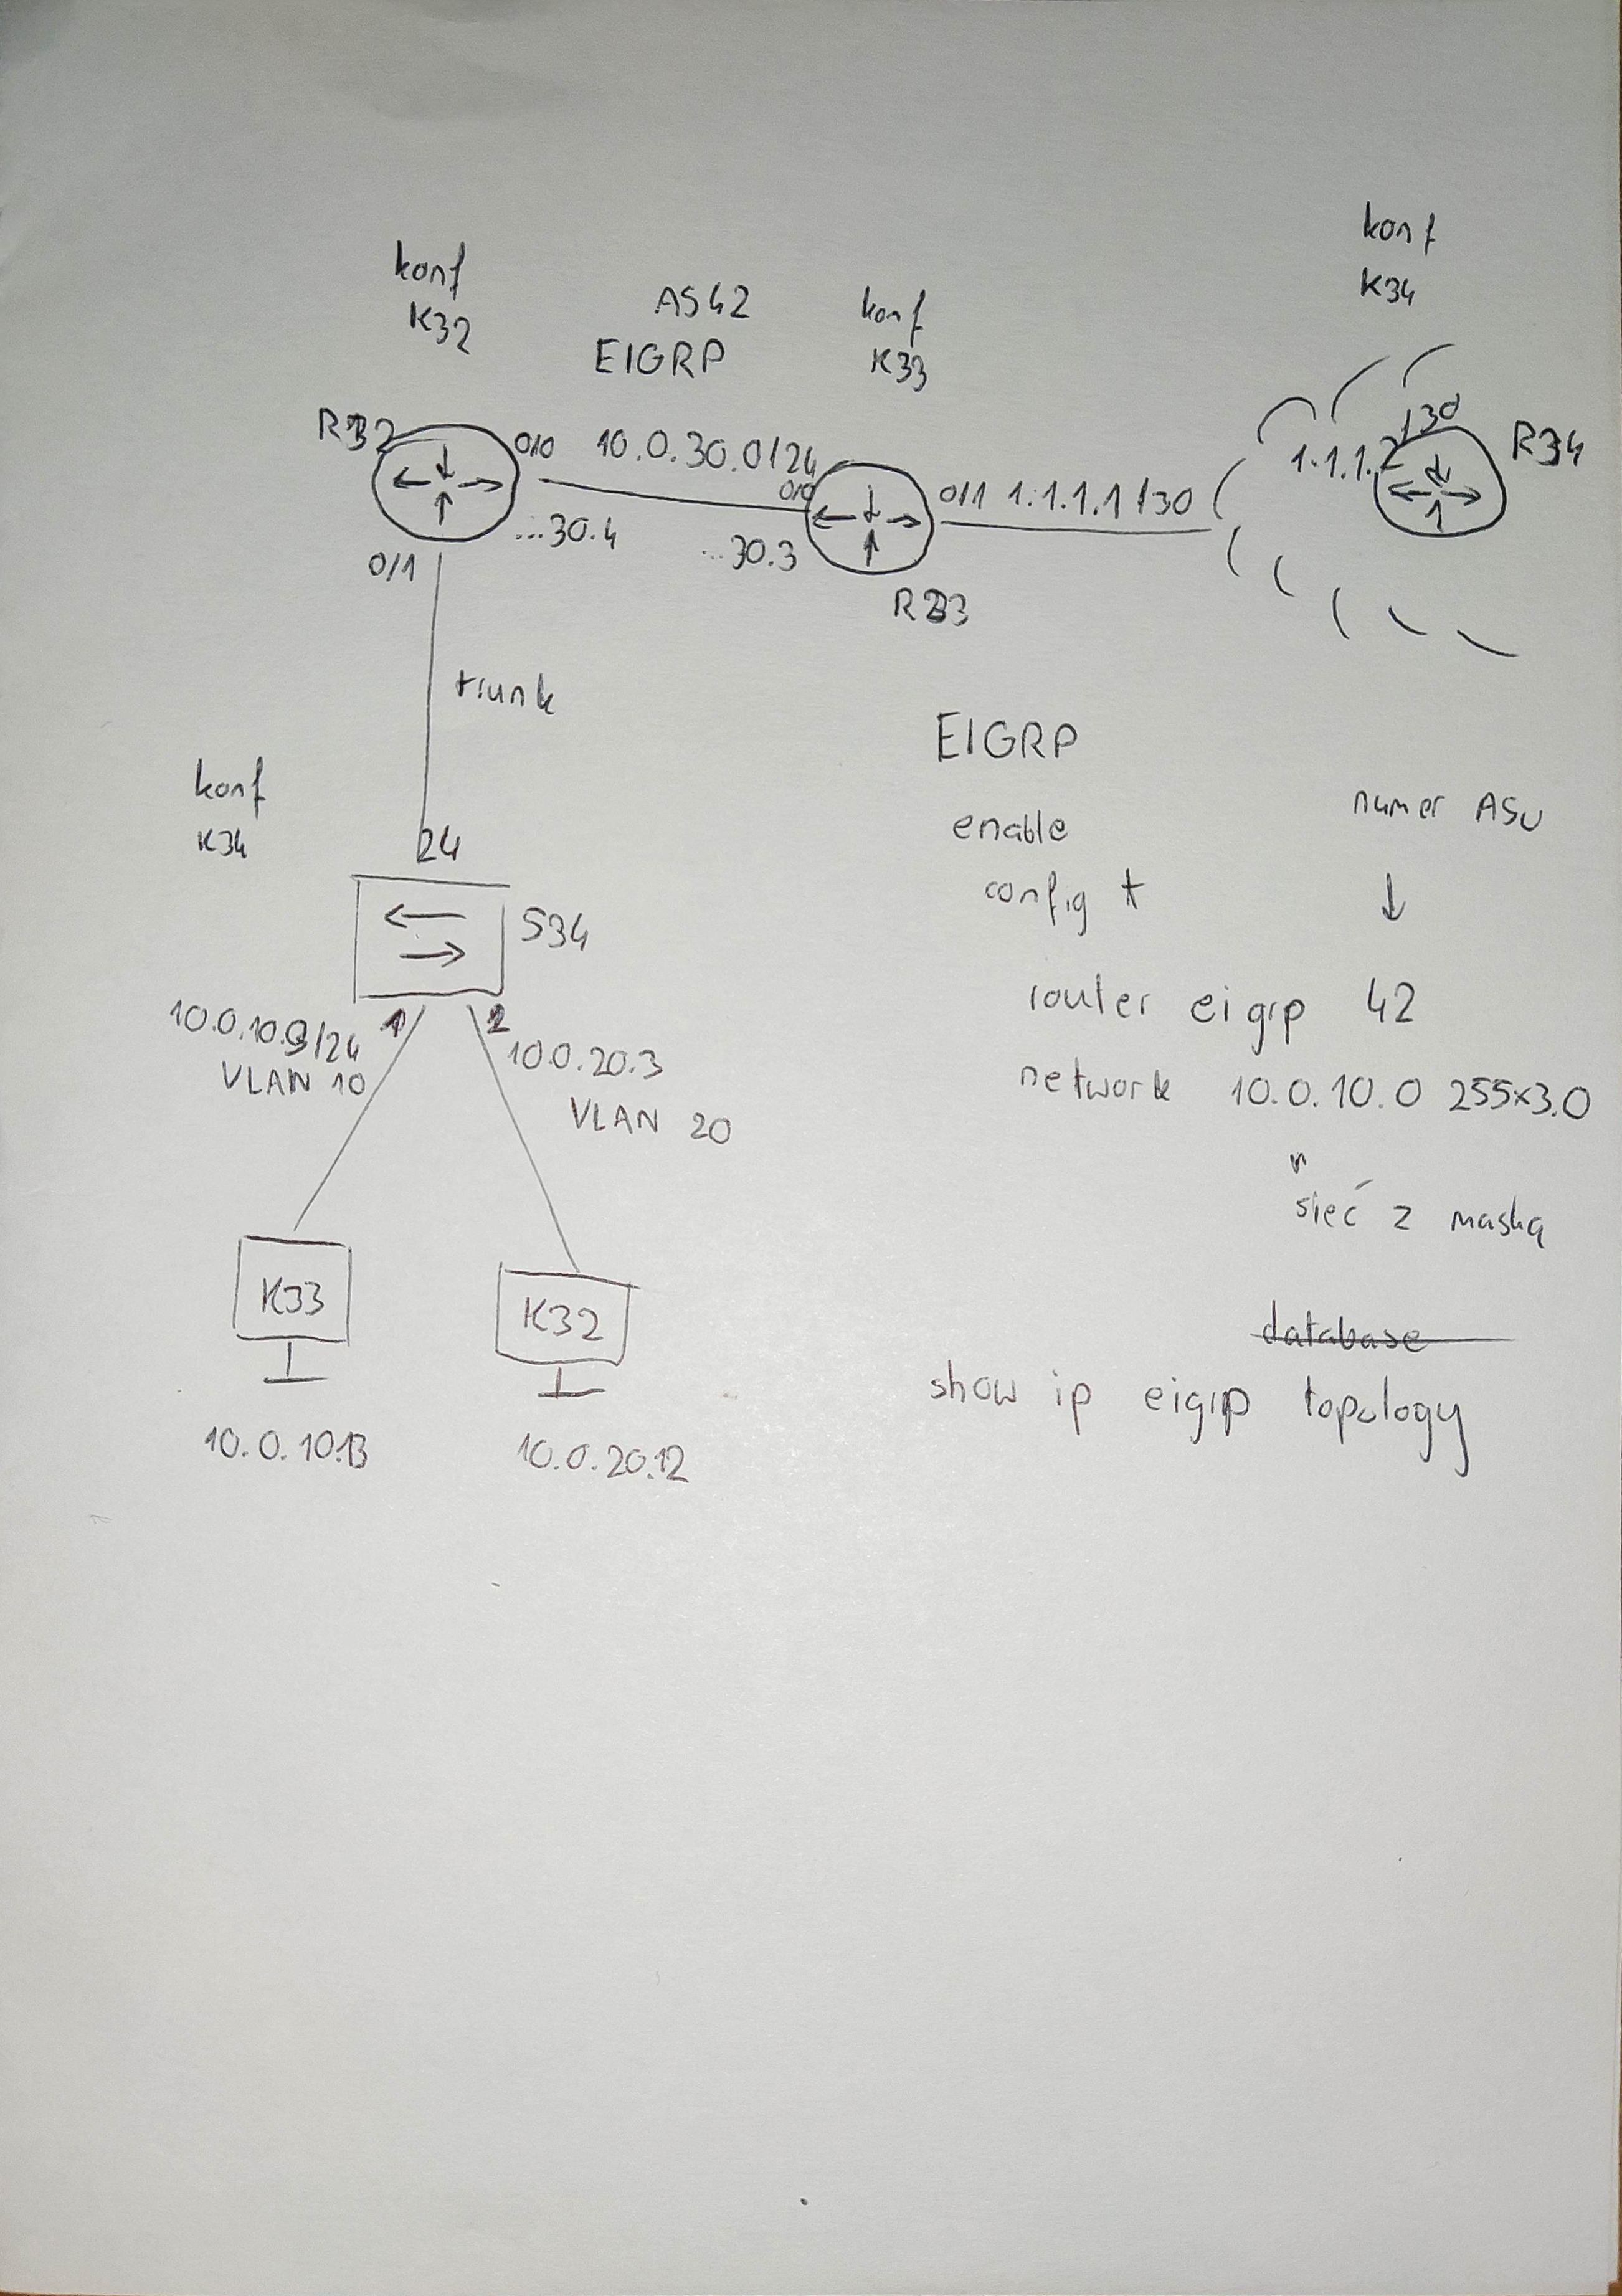 konf
K32
AS42
EIGRP
konf
K33
konf
K34
R32
0/0
10.0.30.0/24
0/0
0/1 1.1.1.1/30
1.1.1.2/30
R34
...30.4
...30.3
0/1
R33
trunk
konf
K34
24
S34
10.0.10.3/24
VLAN 10
1
2
10.0.20.3
VLAN 20
K33
K32
10.0.10.13
10.0.20.12
EIGRP
enable
numer ASu
config t
router eigrp 42
network 10.0.10.0 255x3.0
sieć z maską
database
show ip eigrp topology